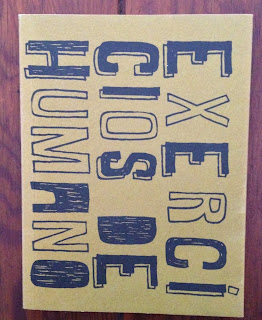 EXERCÍ
CIOS DE
HUMANO